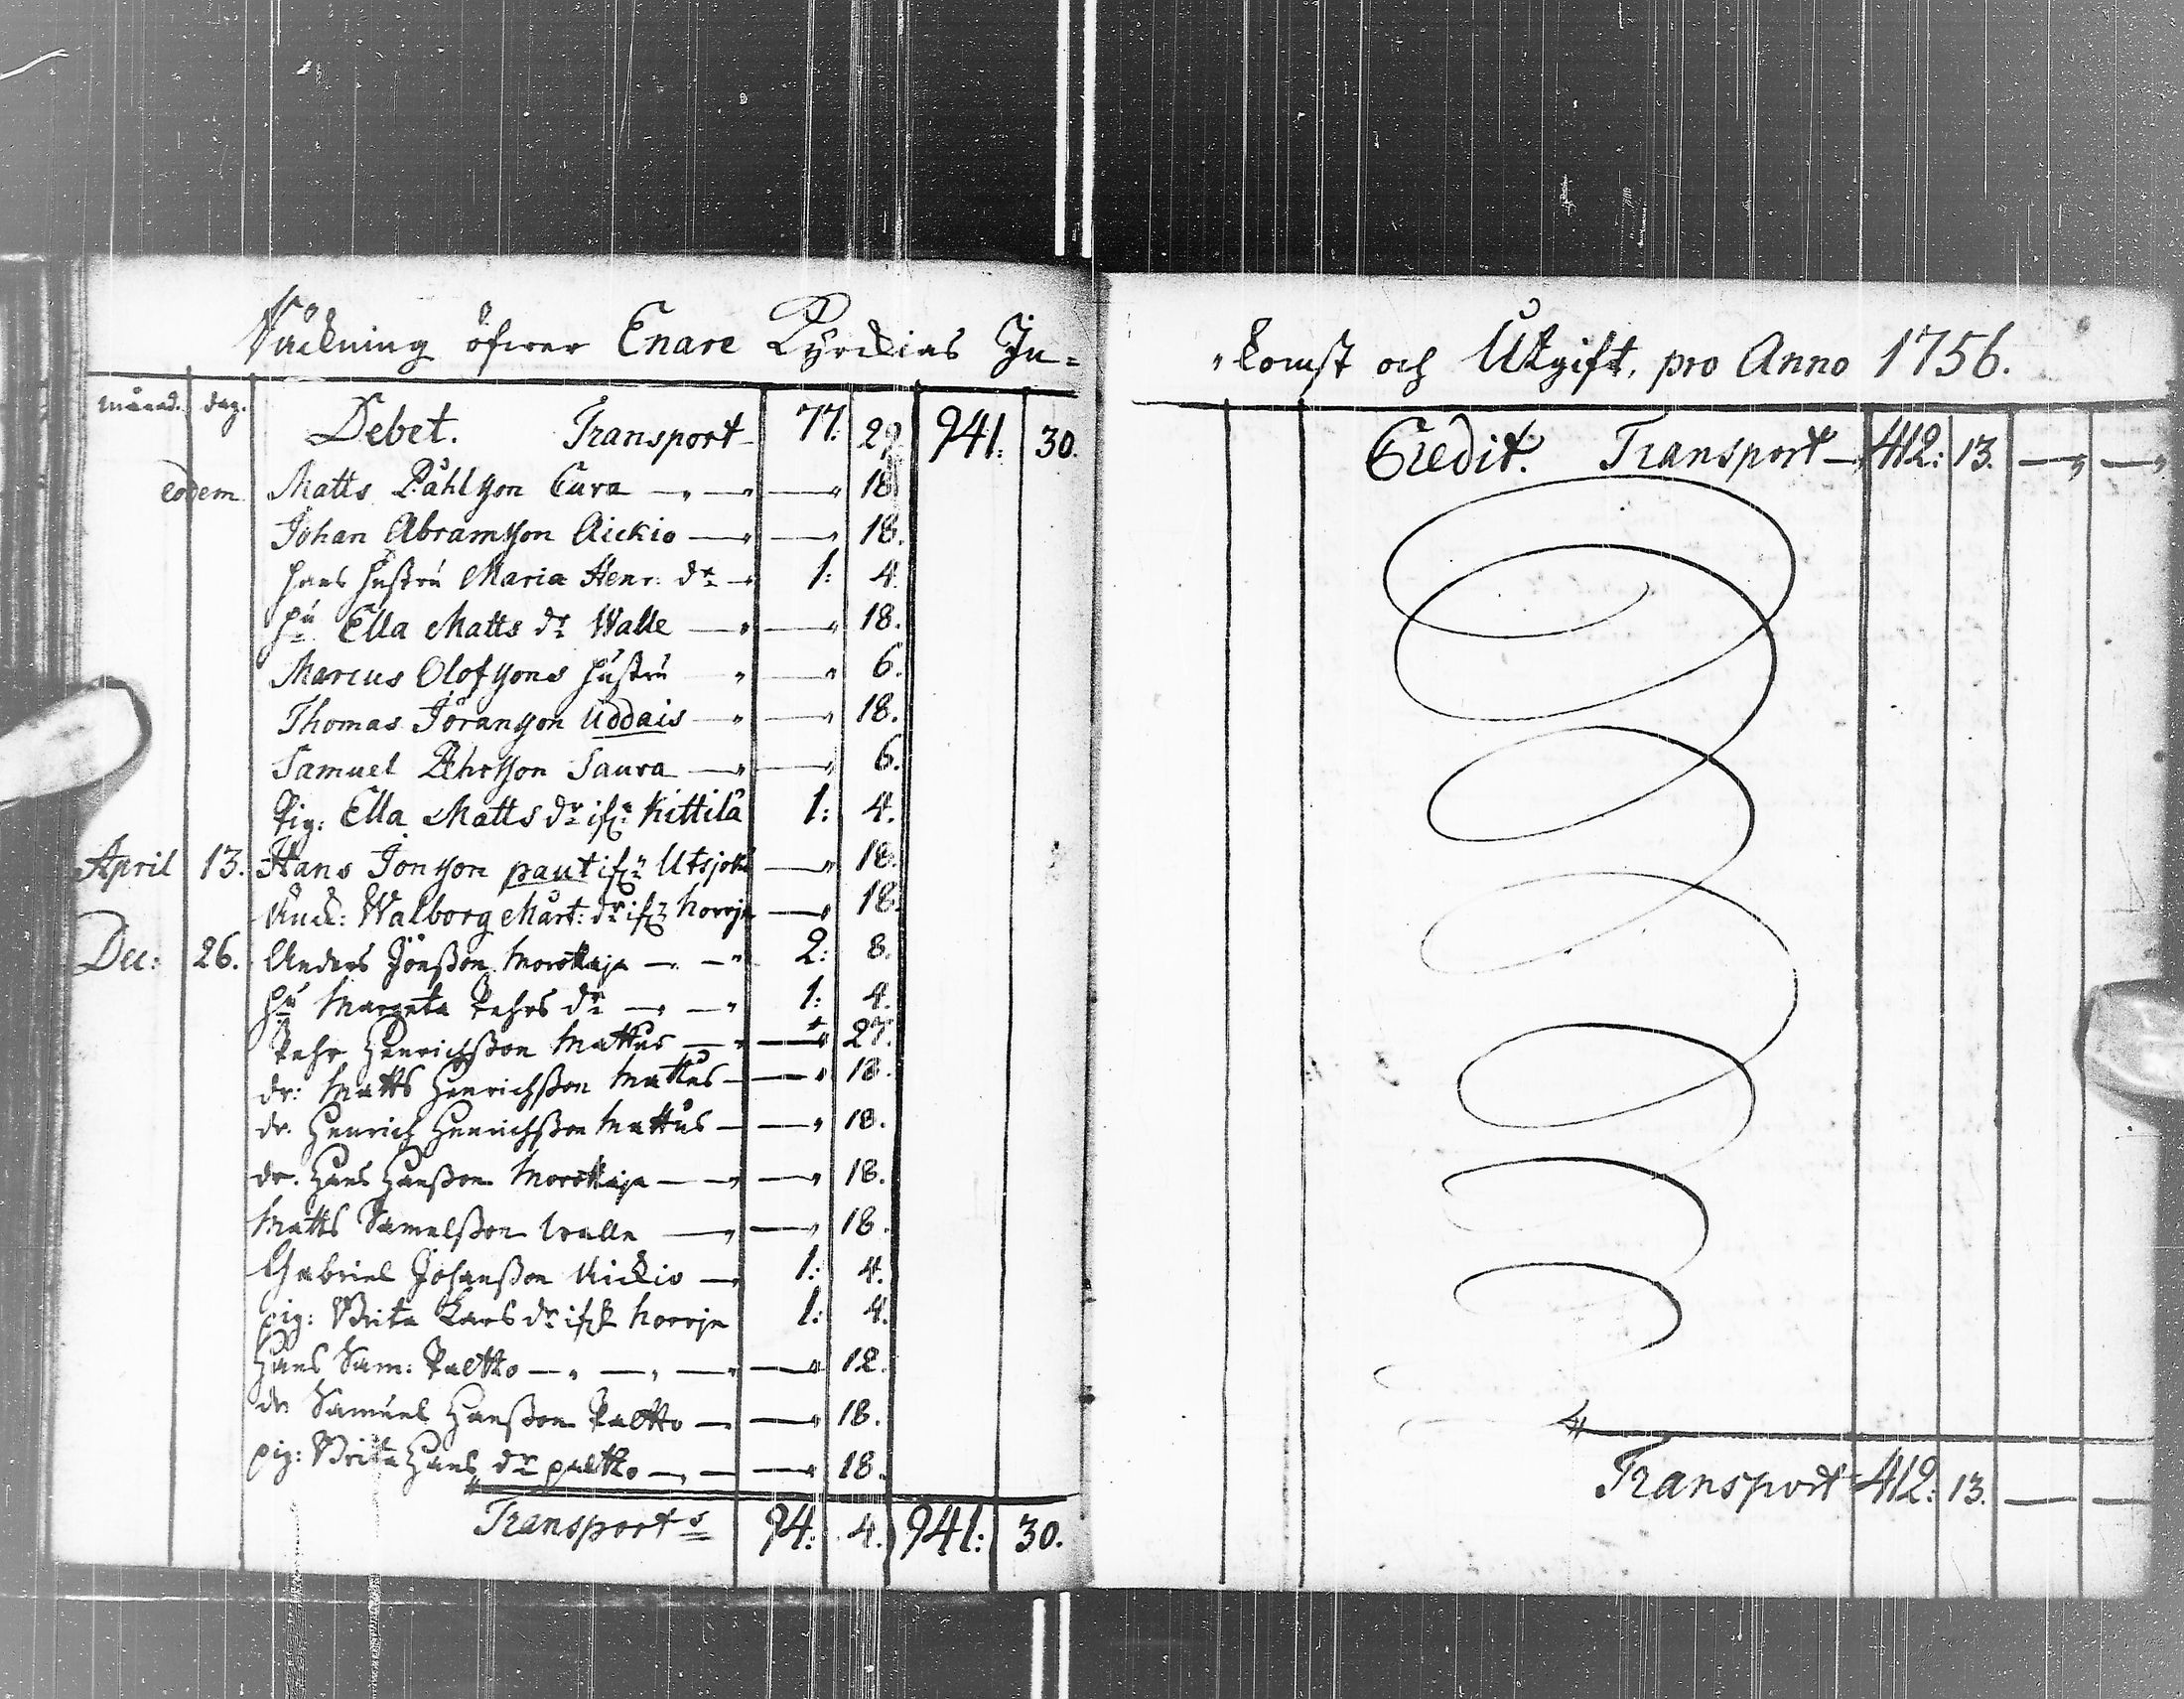 Räckning öfwer Enare Kyrckias In=
månad. dag.
Debet. Transport 77: 29. 941: 30.
eodem Matts Påhlsson Cura — — 18.
Johan Abramsson Aickio — — 18.
Hans Hustru Maria Henr: dr — 1: 4.
Hu Ella Matts dr Walle — — 18.
Marcus Olofssons Hustru — 6.
Thomas Jöransson Uddais — — 18.
Samuel Pehrsson Saura — — 6.
Pig: Ella Matts dr ifr Kittilä 1: 4.
April 13. Hans Jonsson paut ifr Utsjoki — 18.
Änck: Walborg Mårt: dr ifr Norrje — 18.
Dec: 26. Anders Jönsson Morottaja — — 2: 8.
Hu Margeta Pehrs dr — — 1: 4.
Pehr Henrichsson Mattus — — 27.
dr: Matts Henrichsson Mattus — — 18.
dr. Henrich Henrichsson Mattus — — 18.
dr. Hans Hansson Morottaja — — — 18.
Matts Samulsson Walle — — 18.
Gabriel Johansson Aickio — 1: 4.
pig: Brita Lars dr ifr Norrje 1: 4.
Hans Sam: Paltto — — — — 12.
dr Samuel Hansson Paltto — — 18.
pig: Brita Hans dr paltto — — — 18.
Transport 94: 4. 941: 30.
komst och Utgift, pro Anno 1756.
Credit. Transport — 412: 13. — —
Transport 412: 13. — —